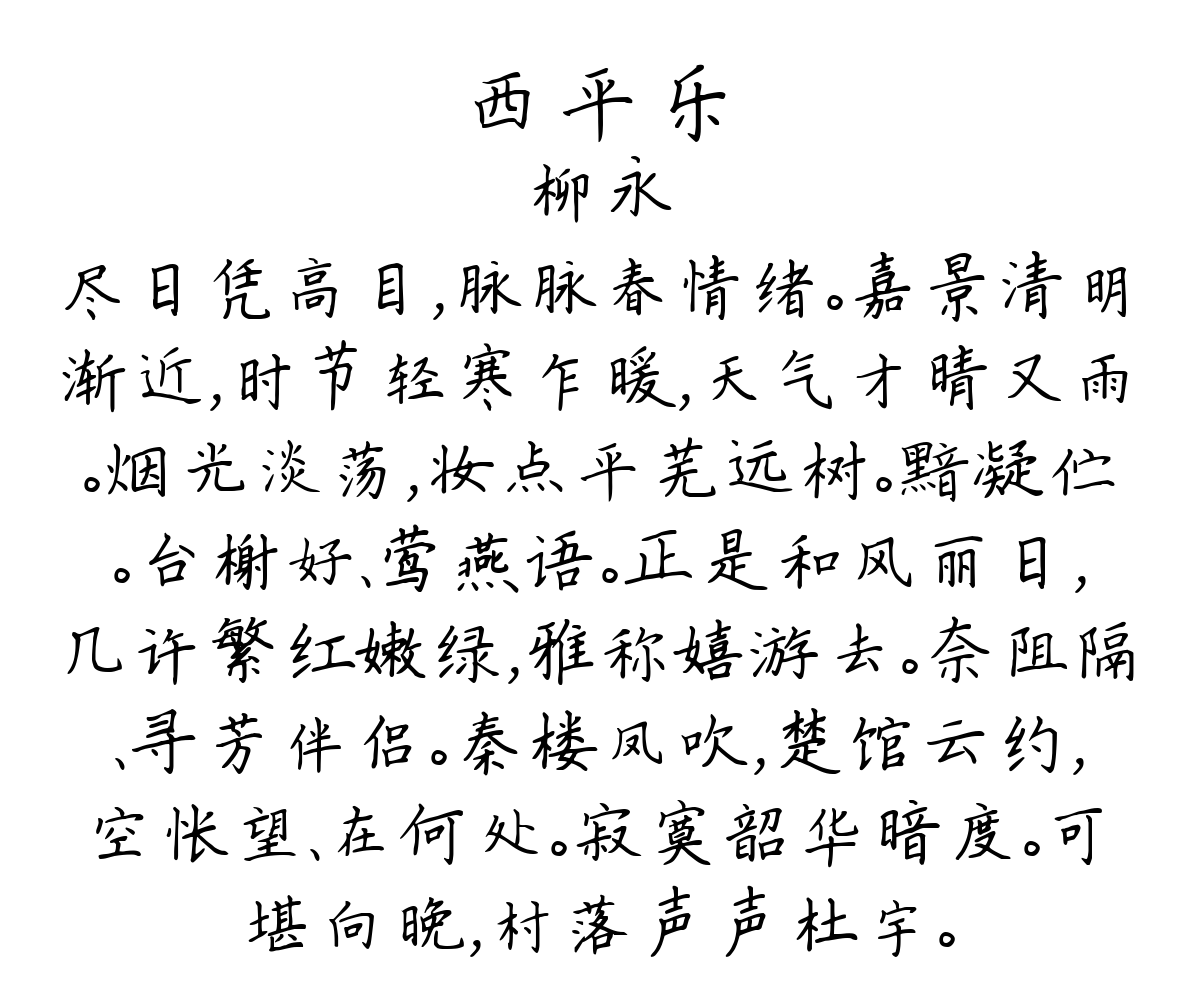 西平乐
柳永
尽日凭高目,脉脉春情绪。嘉景清明
渐近,时节轻寒乍暖,天气才晴又雨
。烟光淡荡,妆点平芜远树。黯凝伫
。台榭好、莺燕语。正是和风丽日,
几许繁红嫩绿,雅称嬉游去。奈阻隔
、寻芳伴侣。秦楼凤吹,楚馆云约,
空怅望、在何处。寂寞韶华暗度。可
堪向晚,村落声声杜宇。